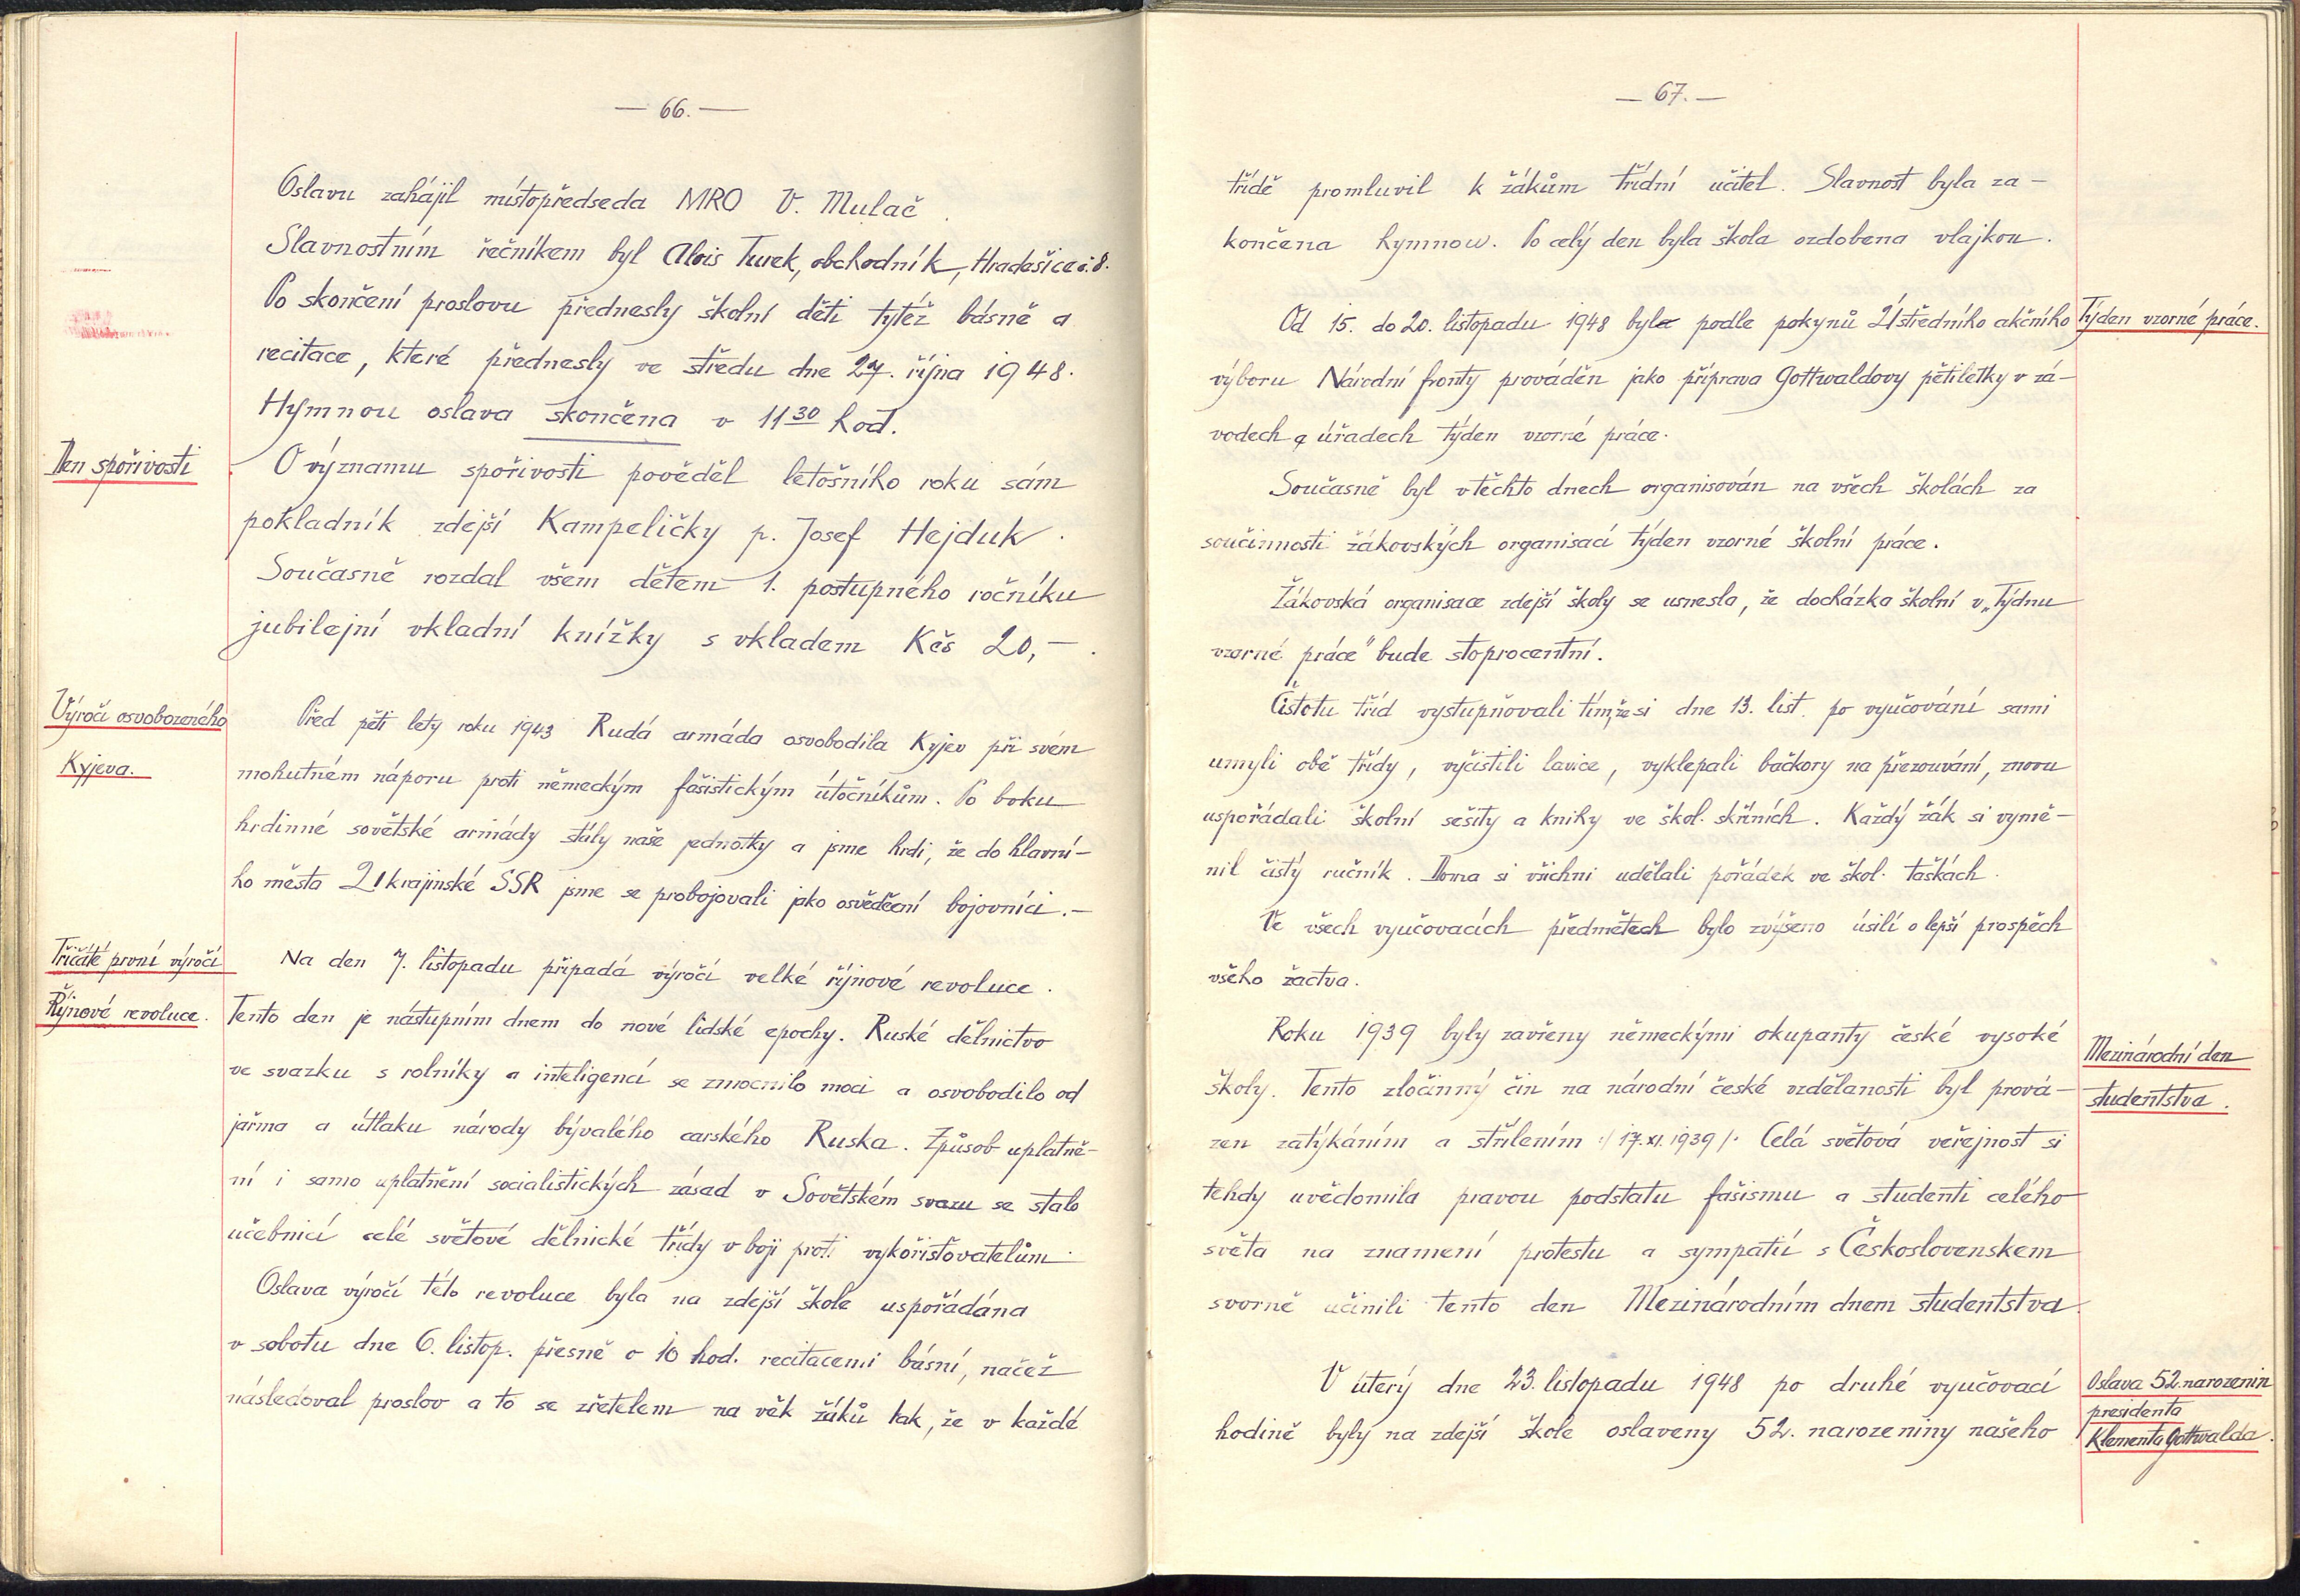 — 66. —
Oslavu zahájil místopředseda MRO V. Mulač.
Slavnostním řečníkem byl Alois Turek, obchodník, Hradešice č. 8.
Po skončení proslovu přednesly školní děti tytéž básně a
recitace, které přednesly ve středu dne 27. října 1948.
Hymnou oslava skončena v 11 30 hod.
Den spořivosti
O významu spořivosti pověděl letošního roku sám
pokladník zdejší Kampeličky p. Josef Hejduk.
Současně rozdal všem dětem 1. postupného ročníku
jubilejní vkladní knížky s vkladem Kčs 20,—.
Výročí osvobozeného
Kyjeva.
Před pěti lety roku 1943 Rudá armáda osvobodila Kyjev při svém
mohutném náporu proti německým fašistickým útočníkům. Po boku
hrdinné sovětské armády stály naše jednotky a jsme hrdi, že do hlavní-
ho města Ukrajinské SSR jsme se probojovali jako osvědčení bojovníci.—
Třicáté první výročí
Říjnové revoluce.
Na den 7. listopadu připadá výročí velké říjnové revoluce.
Tento den je nástupním dnem do nové lidské epochy. Ruské dělnictvo
ve svazku s rolníky a inteligencí se zmocnilo moci a osvobodilo od
jařma a útlaku národy bývalého carského Ruska. Způsob uplatně-
ní i samo uplatnění socialistických zásad v Sovětském svazu se stalo
učebnicí celé světové dělnické třídy v boji proti vykořisťovatelům.
Oslava výročí této revoluce byla na zdejší škole uspořádána
v sobotu dne 6. listop. přesně o 10 hod. recitacemi básní, načež
následoval proslov a to se zřetelem na věk žáků tak, že v každé
— 67. —
třídě promluvil k žákům třídní učitel. Slavnost byla za-
končena hymnou. Po celý den byla škola ozdobena vlajkou.
Týden vzorné práce.
Od 15. do 20. listopadu 1948 byl podle pokynů Ústředního akčního
výboru Národní fronty prováděn jako příprava Gottwaldovy pětiletky v zá-
vodech a úřadech týden vzorné práce.
Současně byl v těchto dnech organisován na všech školách za
součinnosti žákovských organisací týden vzorné školní práce.
Žákovská organisace zdejší školy se usnesla, že docházka školní v „Týdnu
vzorné práce" bude stoprocentní.
Čistotu tříd vystupňovali tím, že si dne 13. list. po vyučování sami
umyli obě třídy, vyčistili lavice, vyklepali bačkory na přezouvání, znovu
uspořádali školní sešity a knihy ve škol. skříních. Každý žák si vymě-
nil čistý ručník. Doma si všichni udělali pořádek ve škol. taškách.
Ve všech vyučovacích předmětech bylo zvýšeno úsilí o lepší prospěch
všeho žactva.
Mezinárodní den
studentstva.
Roku 1939 byly zavřeny německými okupanty české vysoké
školy. Tento zločinný čin na národní české vzdělanosti byl prová-
zen zatýkáním a střílením ./ 17. XI. 1939 /. Celá světová veřejnost si
tehdy uvědomila pravou podstatu fašismu a studenti celého
světa na znamení protestu a sympatií s Československem
svorně učinili tento den Mezinárodním dnem studentstva.
Oslava 52. narozenin
presidenta
Klementa Gottwalda.
V úterý dne 23. listopadu 1948 po druhé vyučovací
hodině byly na zdejší škole oslaveny 52. narozeniny našeho